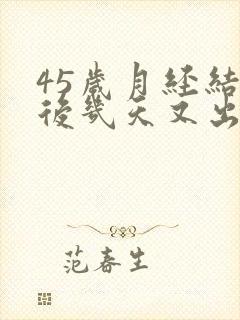 45歲月經結
後幾天又出
范春生